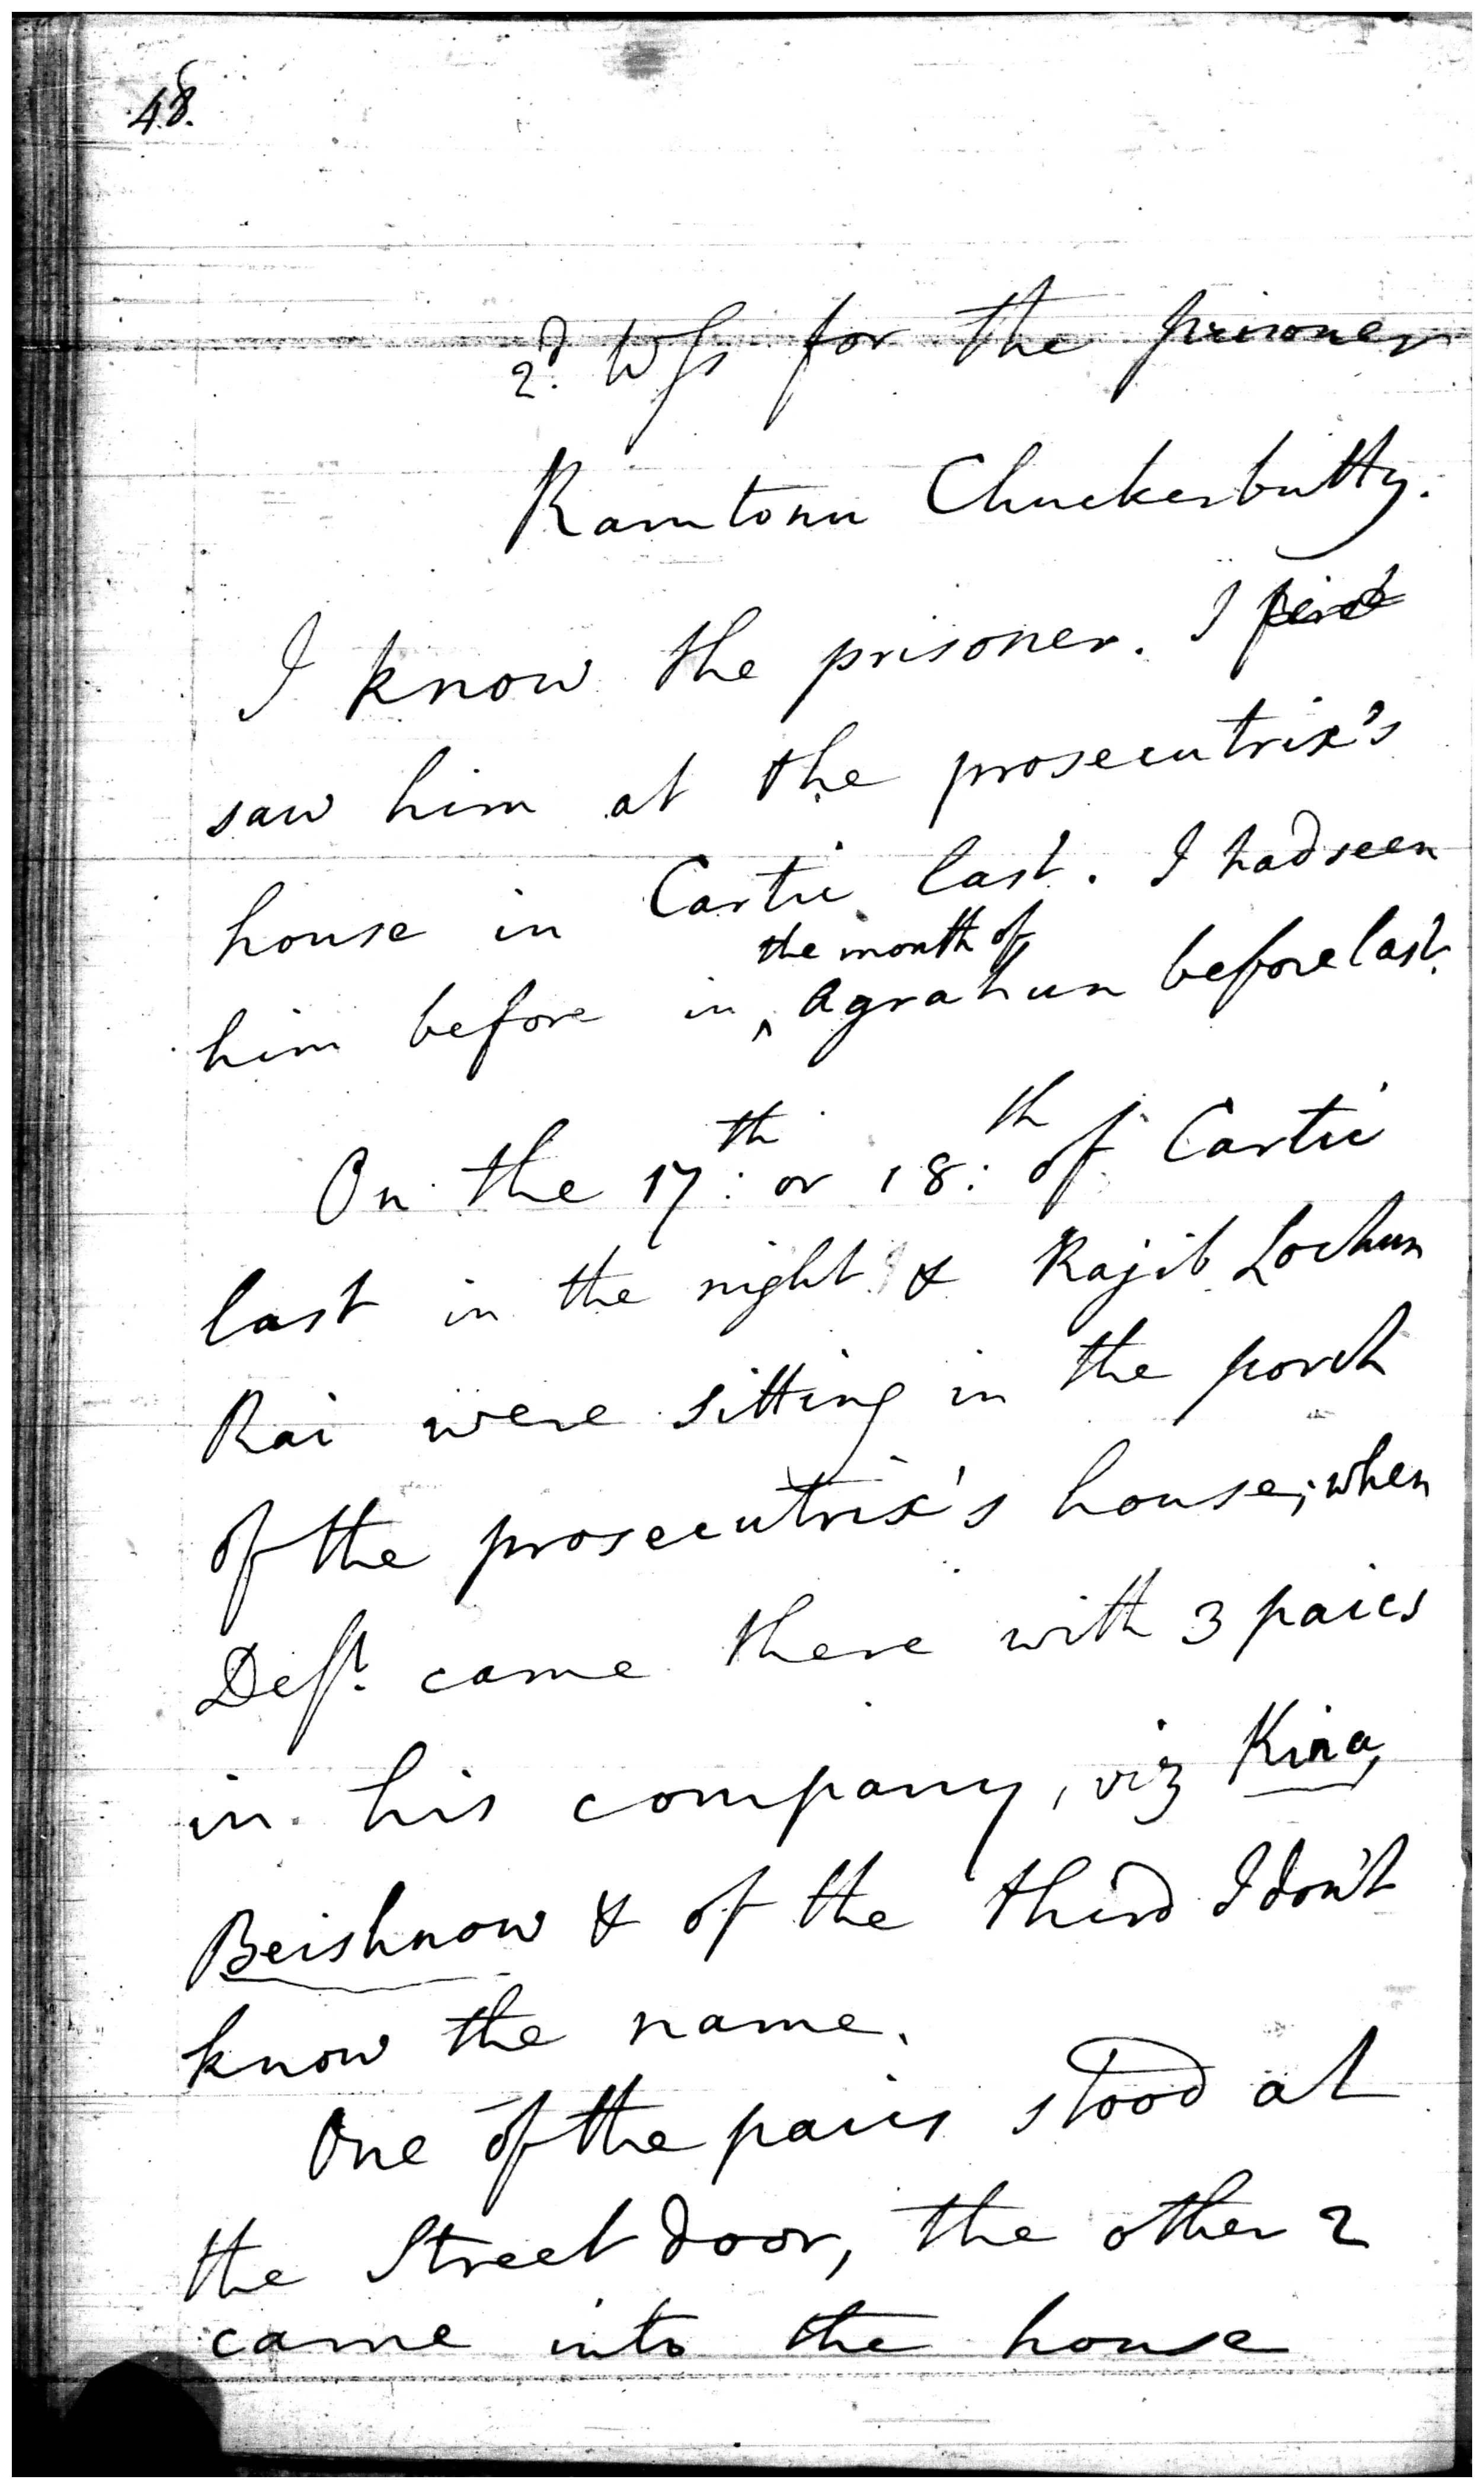 48.
2d. Wss for the prisoner
Ramtonu Chuckerbutty.
I know the prisoner. I first
saw him at the prosecutrix's
house in Cartic last. I had seen
the month of
him before in ^ Agrahun before last.
On the 17th: or 18th: of Cartic
last in the night & Rajib Lochun
Rai were sitting in the porch
of the prosecutrix's house, when
Deft. came there with 3 paics
in his company, viz Kina,
Beishnow & of the third I don't
know the name.
One of the paics stood at
the Street door, the other 2
came into the house